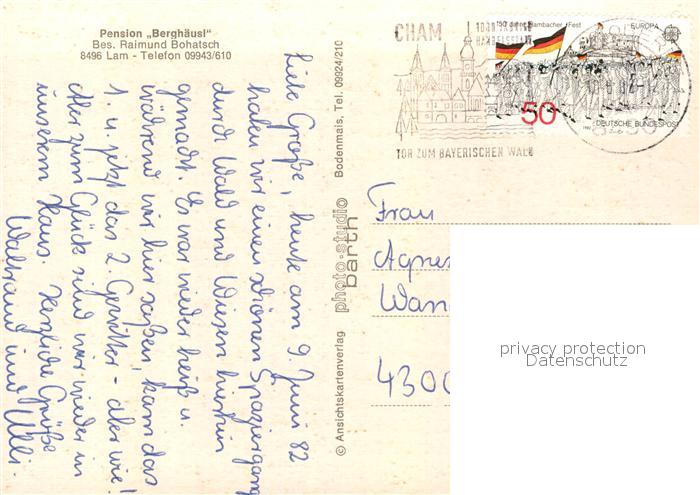 Pension „Berghäusl"
Bes. Raimund Bohatsch
8496 Lam - Telefon 09943/610
Liebe Große, heute am 9. Juni 82
haben wir einen schönen Spaziergang
durch Wald und Wiesen hierhin
gemacht. Es war wieder heiß u.
während wir hier saßen, kam das
1. u. jetzt das 2. Gewitter - aber wie!
Aber zum Glück sind wir wieder in
unserem Haus. Herzliche Grüße
Waltraud und Ulli.
© Ansichtskartenverlag photo-studio barth Bodenmais, Tel. 09924/210
CHAM
HANDELSSTADT
TOR ZUM BAYERISCHEN WALD
150 Jahre Hambacher Fest
EUROPA
50
DEUTSCHE BUNDESPOST
Frau
Agnes
4300
privacy protection
Datenschutz